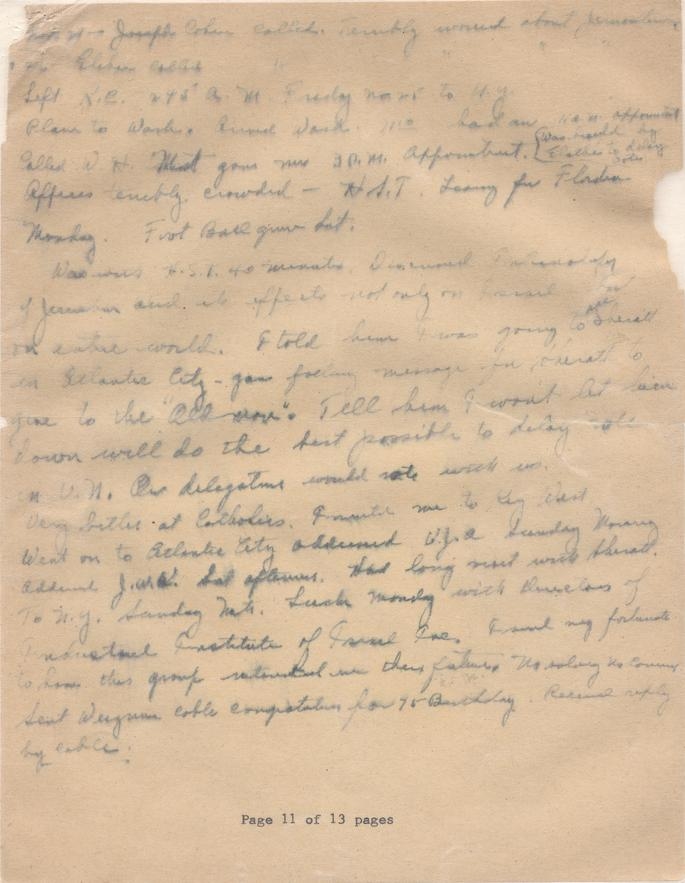 Nov 24 - Joseph Cohen called. Terribly worried about Jerusalem
" 24 Elihu called " " " "
Left K.C. 2 45 A.M. Friday Nov 25 to N.Y.
Plane to Wash. Arrived Wash. 11 10 had an 11 A.M. appointment
(Was by
Called W.H. Matt gave me 3 P.M. Appointment. to delay
vote
Offices terribly crowded - H.S.T. Leaving for Florida
Monday. Foot Ball game Sat.
Was with H.S.T. 40 minutes. Discussed
of Jerusalem and its effects not only on Israel but
on entire world. I told him I was going to see Sharett
in Atlantic City - gave following message for Sharett to
give to the "Old Man". Tell him I won't let him
down will do the best possible to delay vote
in U.N. Our delegation would vote with us.
Very bitter at Catholics. Invited me to Key West
Went on to Atlantic City addressed U.J.A. Sunday Morning
Address J.W.V. Sat afternoon. Had long visit with Sharett.
To N.Y. Sunday Nite. Lunch Monday with Directors of
Industrial Institute of Israel Inc. Israel very fortunate
to have this group interested in their future. No salary No Comm
Sent Weizmann cable congratulations for 75 Birthday. Received reply
by cable.
Page 11 of 13 pages